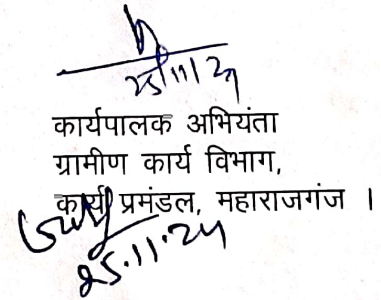 25/11/24
कार्यपालक अभियंता
ग्रामीण कार्य विभाग,
कार्य प्रमंडल, महाराजगंज ।
25.11.24